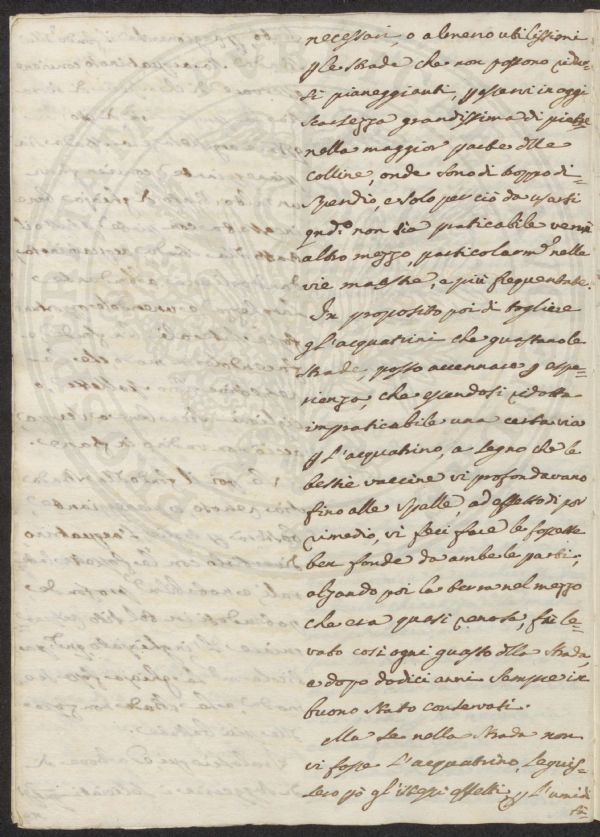 necessari, o almeno utilissimi
p le strade che non possono ridur-
si pianeggianti, p esservi in oggi
scarsezza grandissima di pietre
nella maggior parte dlle
colline, onde sono di troppo di-
spendio, e solo per ciò da usarsi
qndo non sia praticabile verun
altro mezzo, particolarmte nelle
vie maestre, e più frequentate.
In proposito poi di togliere
gl'acquatrini che guastano le
strade, posso accennare p espe-
rienza, che essendosi ridotta
impraticabile una certa via
p l'acquatrino, a segno che le
bestie vaccine vi profondavano
fino alle spalle, ad effetto di por
rimedio, vi feci fare le fossette
ben fonde da ambe le parti,
alzando poi la terra nel mezzo
che era quasi renosa, fu le-
vato così ogni guasto dlla strada,
e dopo dodici anni sempre in
buono stato conservati.
Ma se nella strada non
vi fosse l'acquatrino, seguis-
sero pò gl'istessi effetti p l'umidi